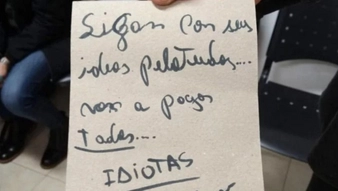 Sigan con sus
ideas pelotudas....
van a pagar
Todas....
IDIOTAS